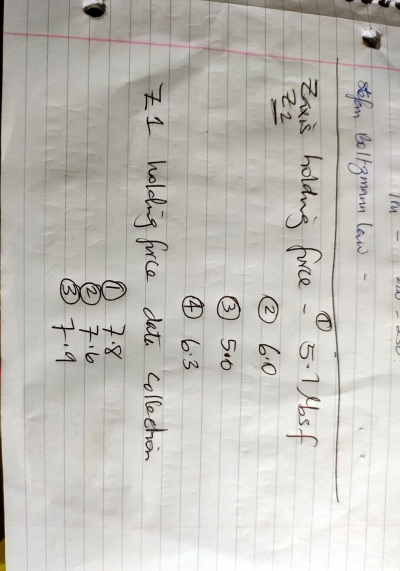 Stefan Boltzmann law -
Z axis holding force - ① 5.7 lbsf
Z2
② 6.0
③ 5.0
④ 6.3
Z1 holding force data collection
① 7.8
② 7.6
③ 7.9